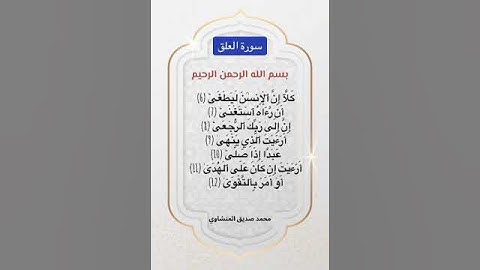 سورة العلق
بسم الله الرحمن الرحيم
كَلَّا إِنَّ ٱلۡإِنسَٰنَ لَيَطۡغَىٰٓ (6)
أَن رَّءَاهُ ٱسۡتَغۡنَىٰٓ (7)
إِنَّ إِلَىٰ رَبِّكَ ٱلرُّجۡعَىٰٓ (8)
أَرَءَيۡتَ ٱلَّذِي يَنۡهَىٰ (9)
عَبۡدًا إِذَا صَلَّىٰٓ (10)
أَرَءَيۡتَ إِن كَانَ عَلَى ٱلۡهُدَىٰٓ (11)
أَوۡ أَمَرَ بِٱلتَّقۡوَىٰٓ (12)
محمد صديق المنشاوي